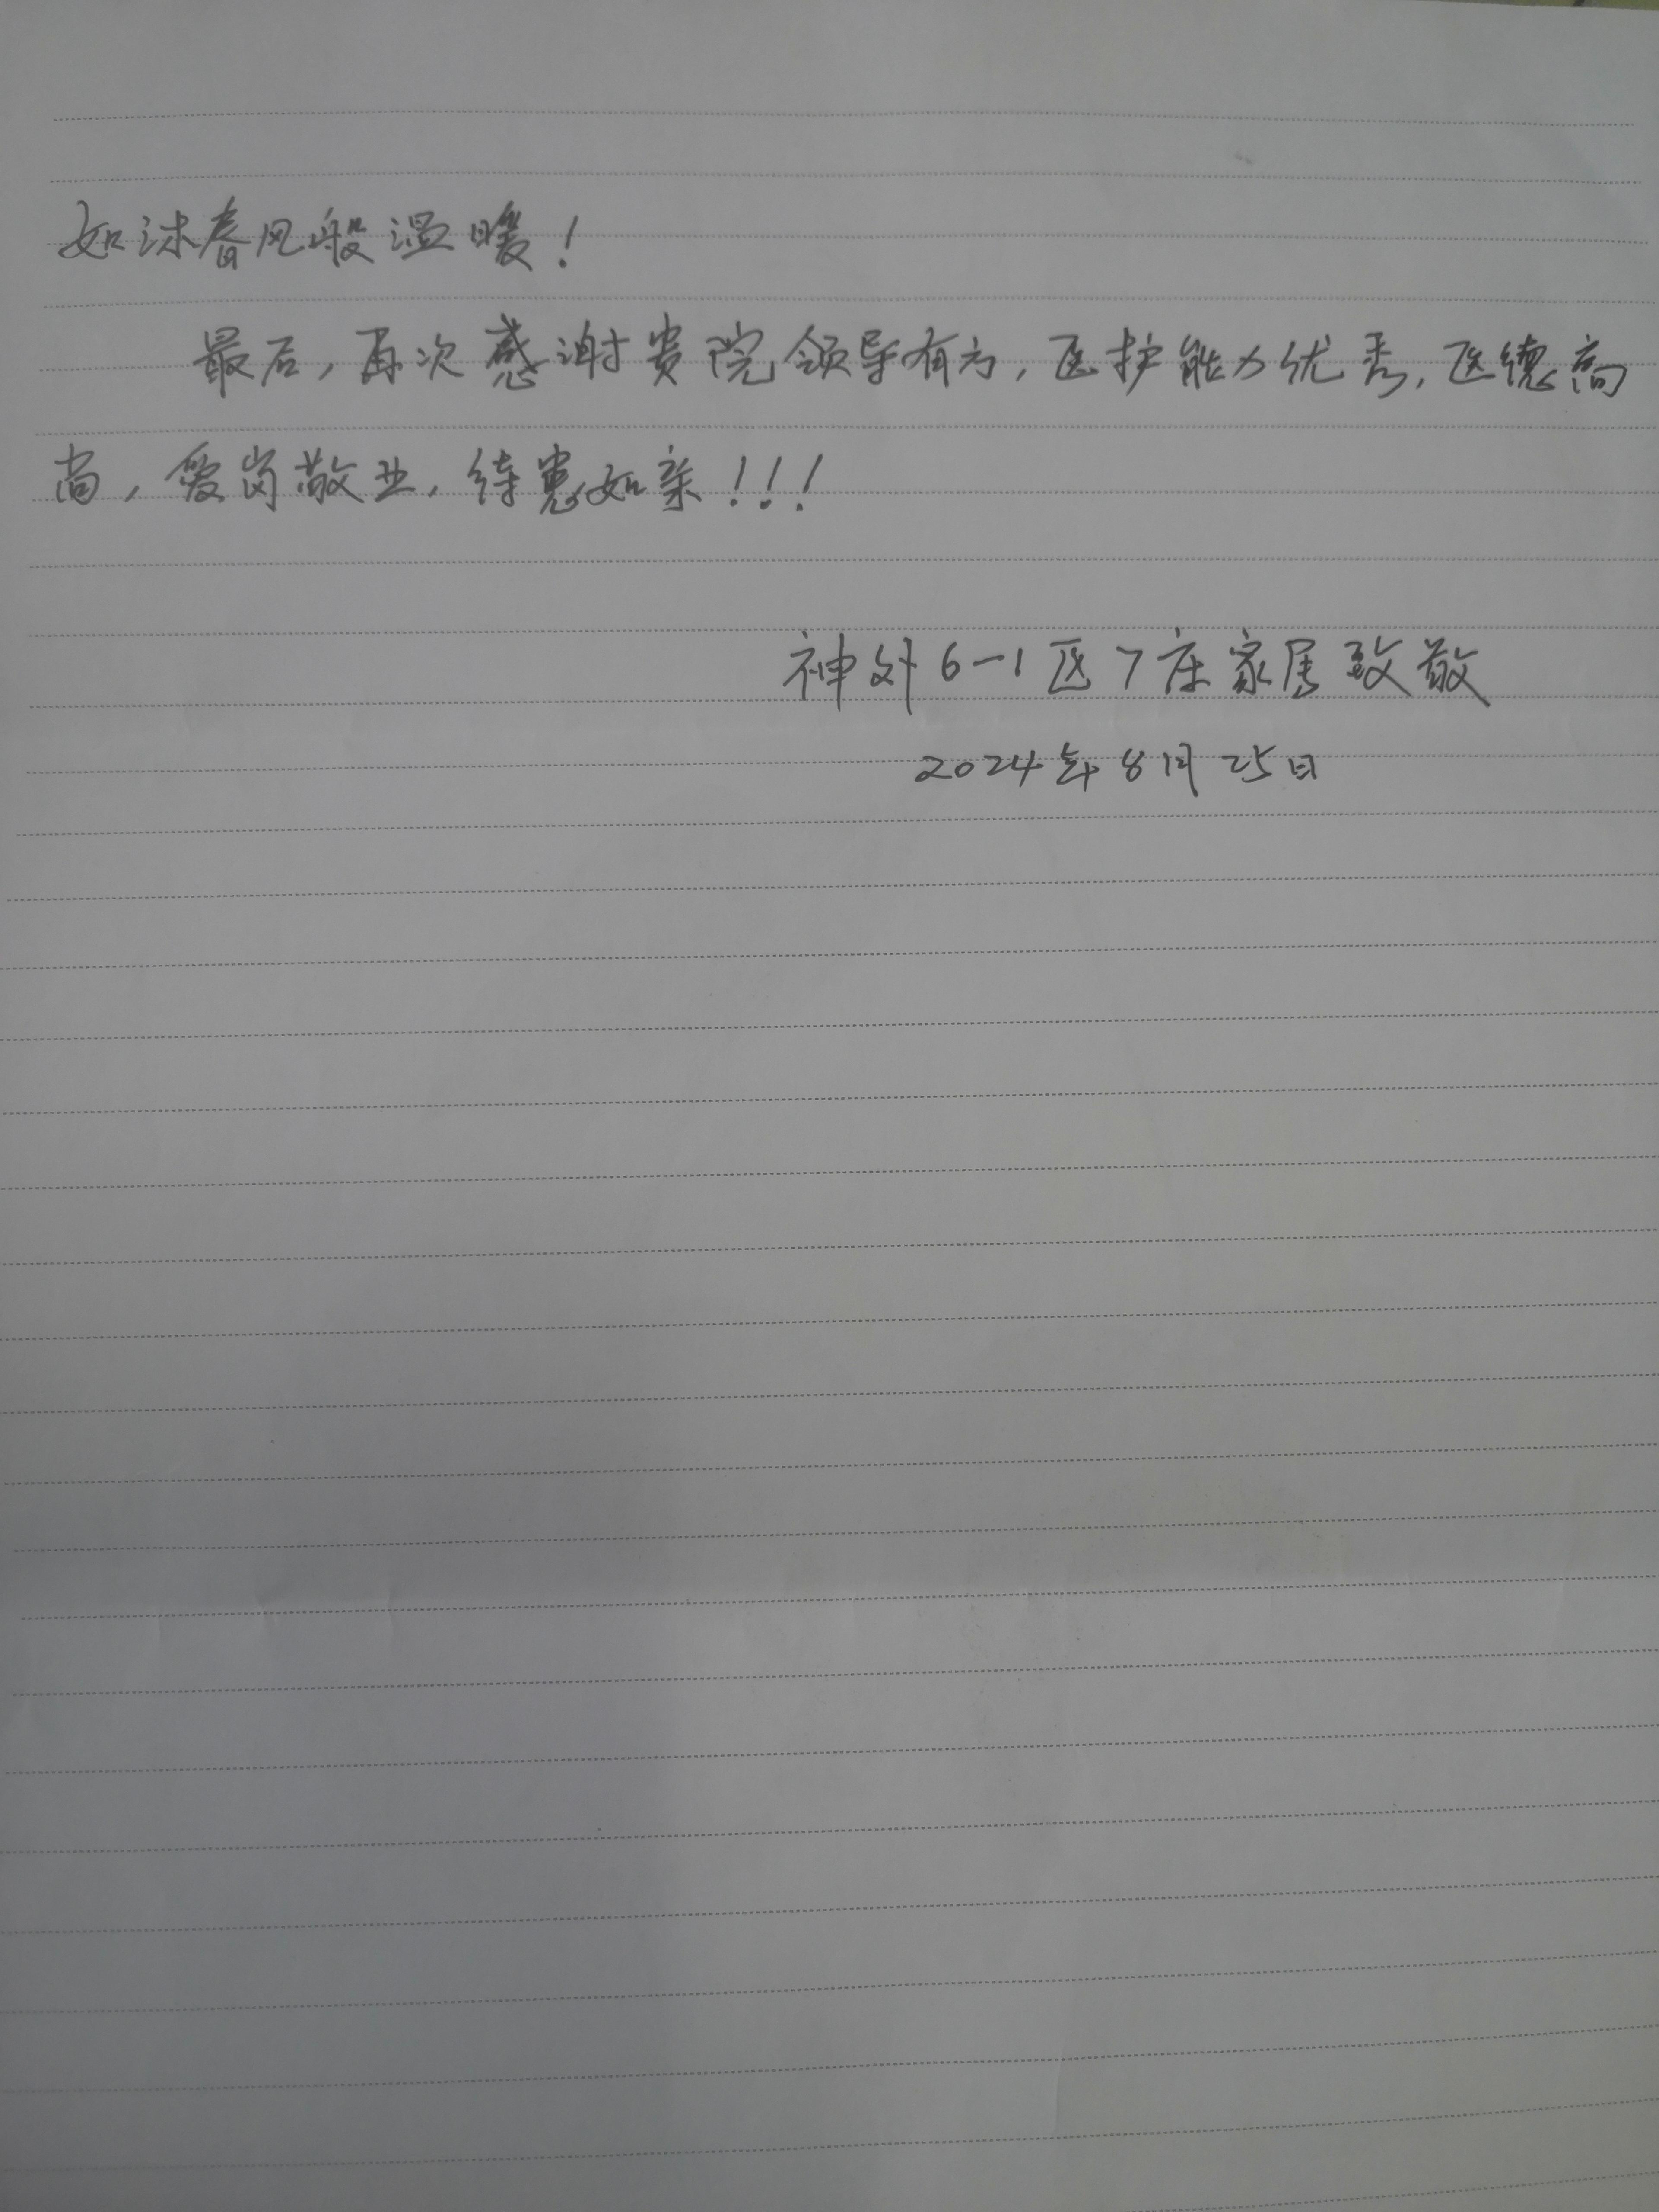 如沐春风般温暖！
最后，再次感谢贵院领导有方，医护能力优秀，医德高
尚，爱岗敬业，待患如亲！！！
神外6-1区7床家属致敬
2024年8月25日